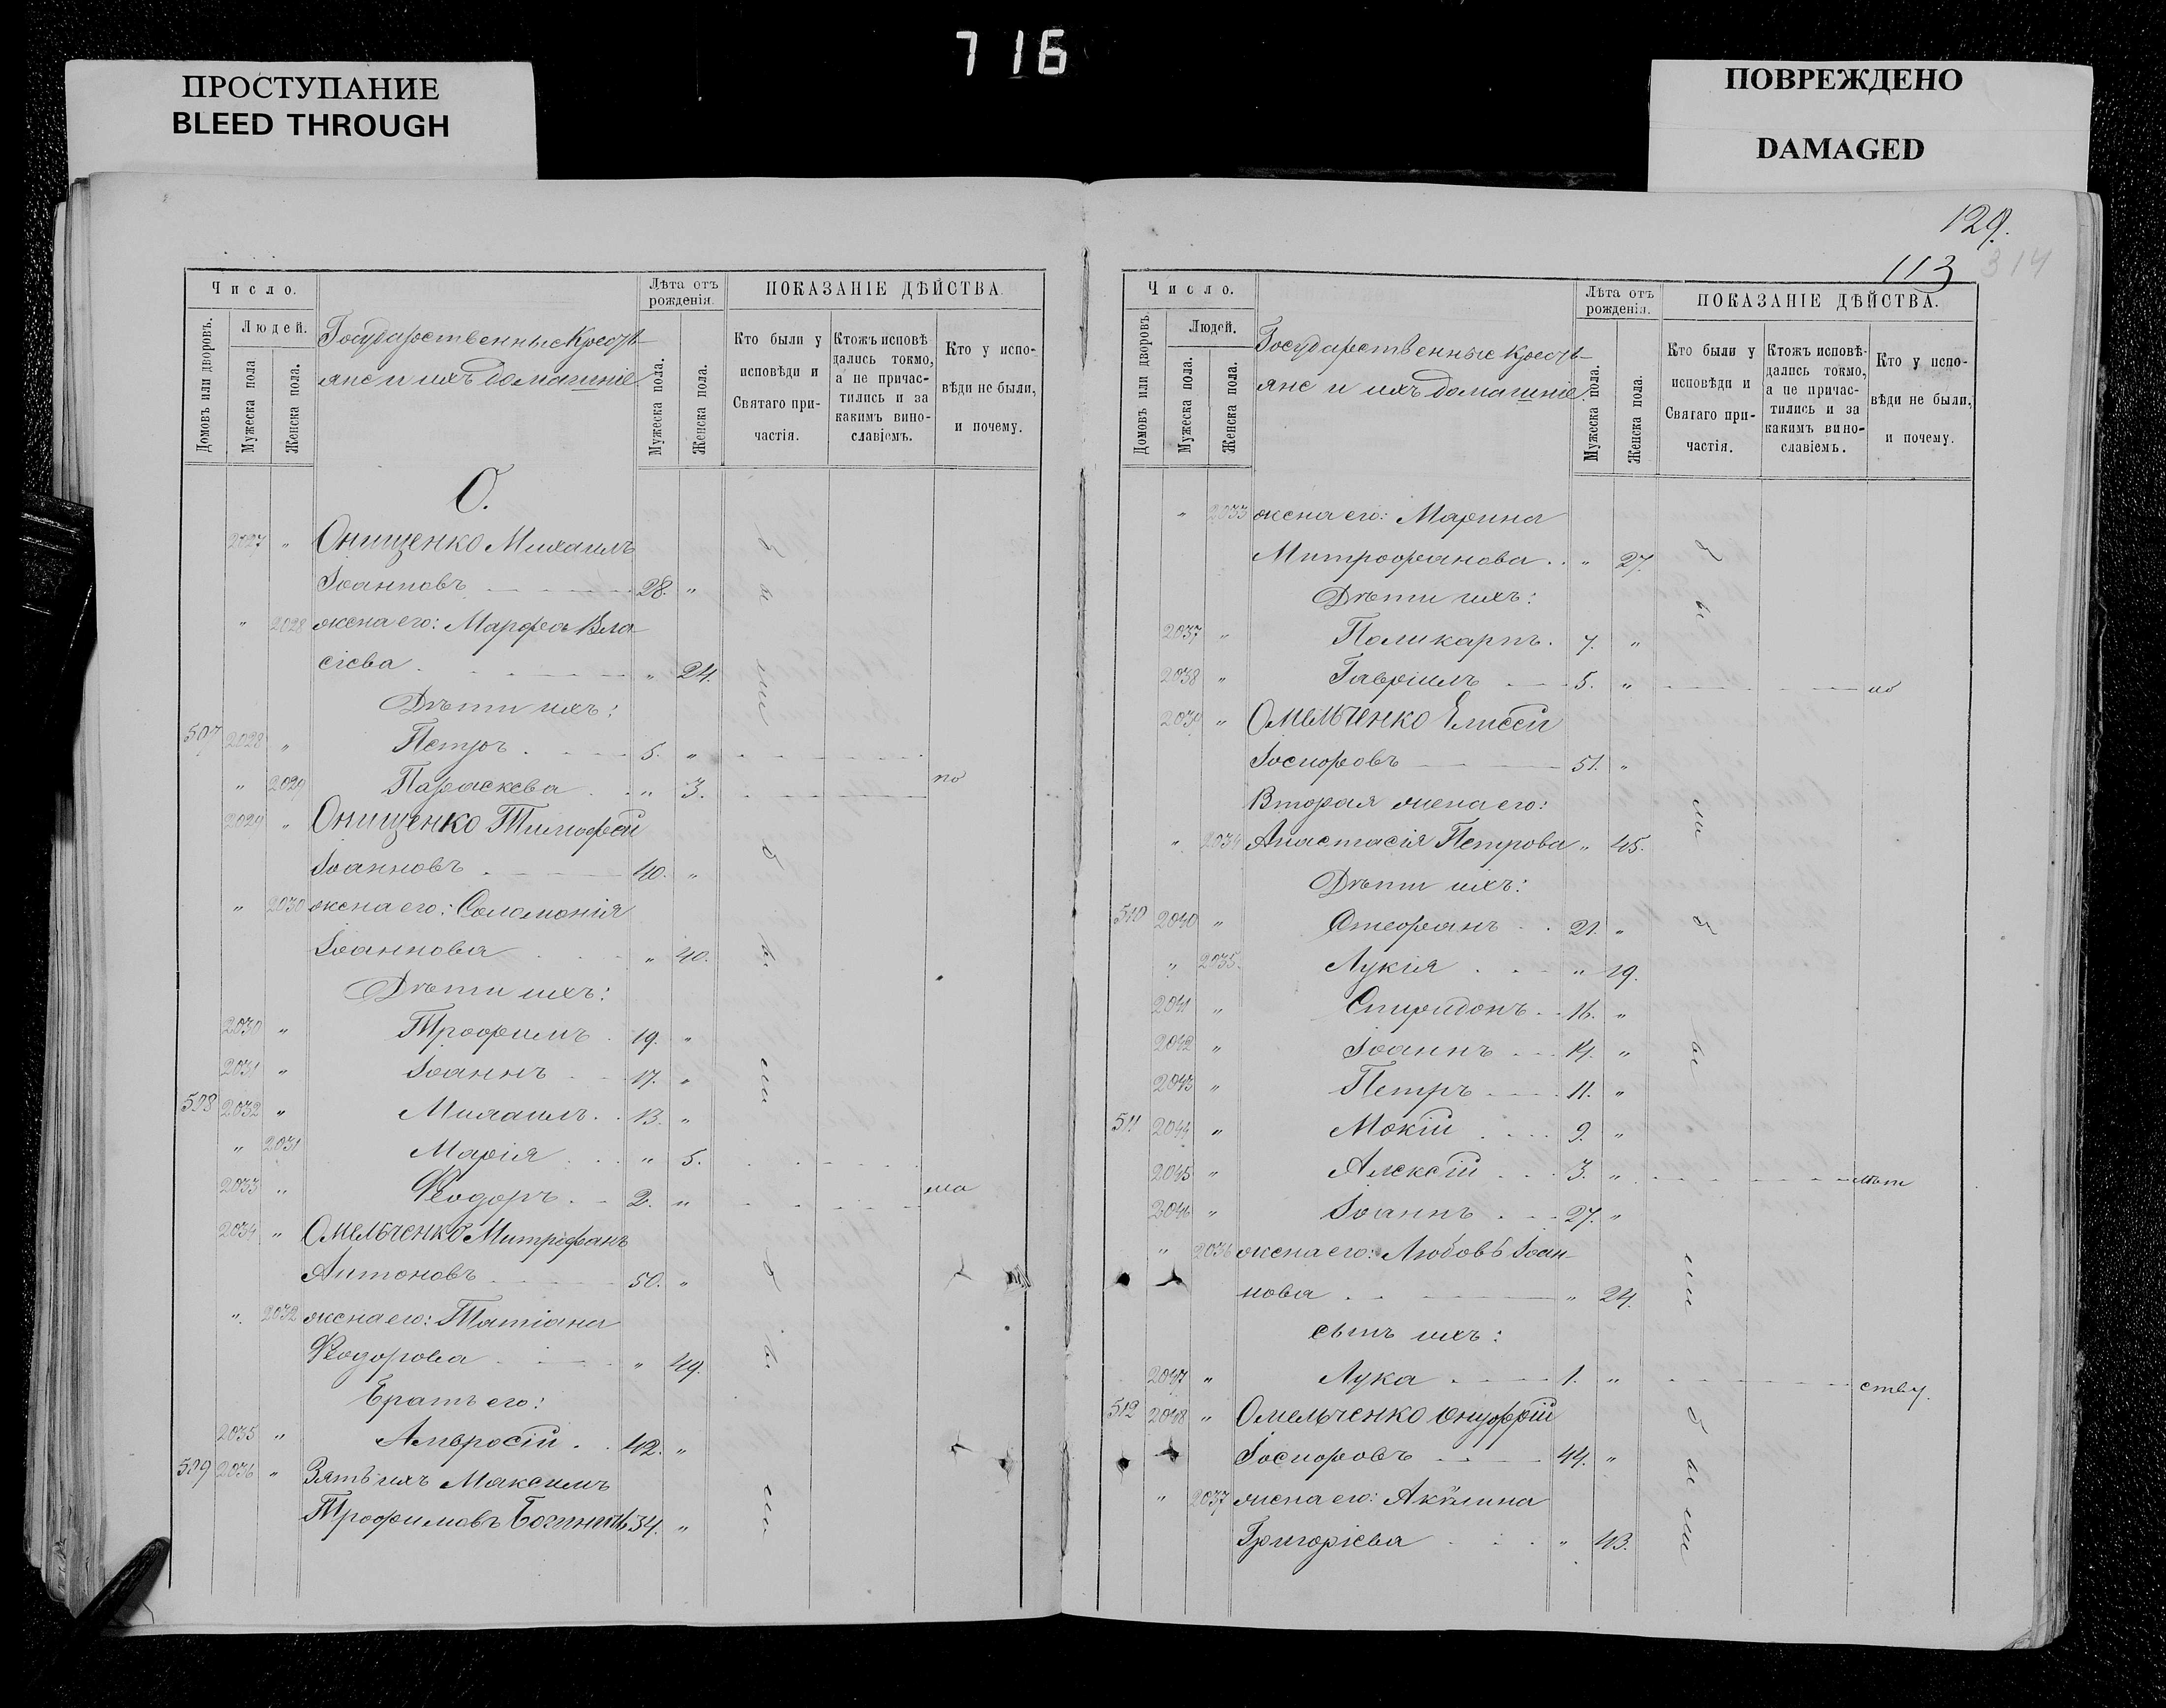 716
ПРОСТУПАНИЕ
BLEED THROUGH
ПОВРЕЖДЕНО
DAMAGED
Число.
Людей.
Домовъ или дворовъ.
Мужеска пола
Женска пола.
Государственные Кресть-
яне и ихъ домашніе
Лѣта отъ рожденія.
Мужеска пола.
Женска пола.
ПОКАЗАНІЕ ДѢЙСТВА.
Кто были у исповѣди и Святаго причастія.
Ктожъ исповѣдались токмо, а не причастились и за какимъ винославіемъ.
Кто у исповѣди не были, и почему.
О.
2027 " Онищенко Михаилъ
Іоанновъ 28. "
" 2028 жена его: Марфа Вла-
сіева " 24.
Дѣти ихъ:
507 2028 " Петръ 5. "
" 2029 Параскева " 3. по
2029 " Онищенко Тимофей
Іоанновъ 40. "
" 2030 жена его: Соломонія
Іоаннова " 40.
Дѣти ихъ:
2030 " Трофимъ 19. "
2031 " Іоаннъ 17. "
508 2032 " Михаилъ 13. "
" 2031 Марія " 5.
2033 " Ѳеодоръ 2. " ма
2034 " Омельченко Митрофанъ
Антоновъ 50. "
" 2032 жена его: Татіана
Ѳеодорова " 49.
Братъ его:
2035 " Амвросій 42. "
509 2036 " Зять ихъ Максимъ
Трофимовъ 34. "
были
были
были
129.
113
314
Число.
Людей.
Домовъ или дворовъ.
Мужеска пола.
Женска пола.
Государственные Кресть-
яне и ихъ домашніе
Лѣта отъ рожденія.
Мужеска пола.
Женска пола.
ПОКАЗАНІЕ ДѢЙСТВА.
Кто были у исповѣди и Святаго причастія.
Ктожъ исповѣдались токмо, а не причастились и за какимъ винославіемъ.
Кто у исповѣди не были, и почему.
" 2033 жена его: Марина
Митрофанова " 27.
Дѣти ихъ:
2037 " Поликарпъ 7. "
2038 " Гавріилъ 5. "
2039 " Омельченко Елисей
Іосифовъ 51. "
Вторая жена его:
" 2034 Анастасія Петрова " 45.
Дѣти ихъ:
510 2040 " Стефанъ 21. "
" 2035. Лукія " 19.
2041 " Спиридонъ 16. "
2042 " Іоаннъ 14. "
2043 " Петръ 11. "
511 2044 " Мокій 9. "
2045 " Алексій 3. " лѣт
2046 " Іоаннъ 27. "
" 2036 жена его: Любовь Іоан-
нова " 24.
сынъ ихъ:
2047 " Лука 1. " ству.
512 2048 " Омельченко Онуфрій
Іосифовъ 44. "
" 2037 жена его: Акилина
Григоріева " 43.
были
были
были